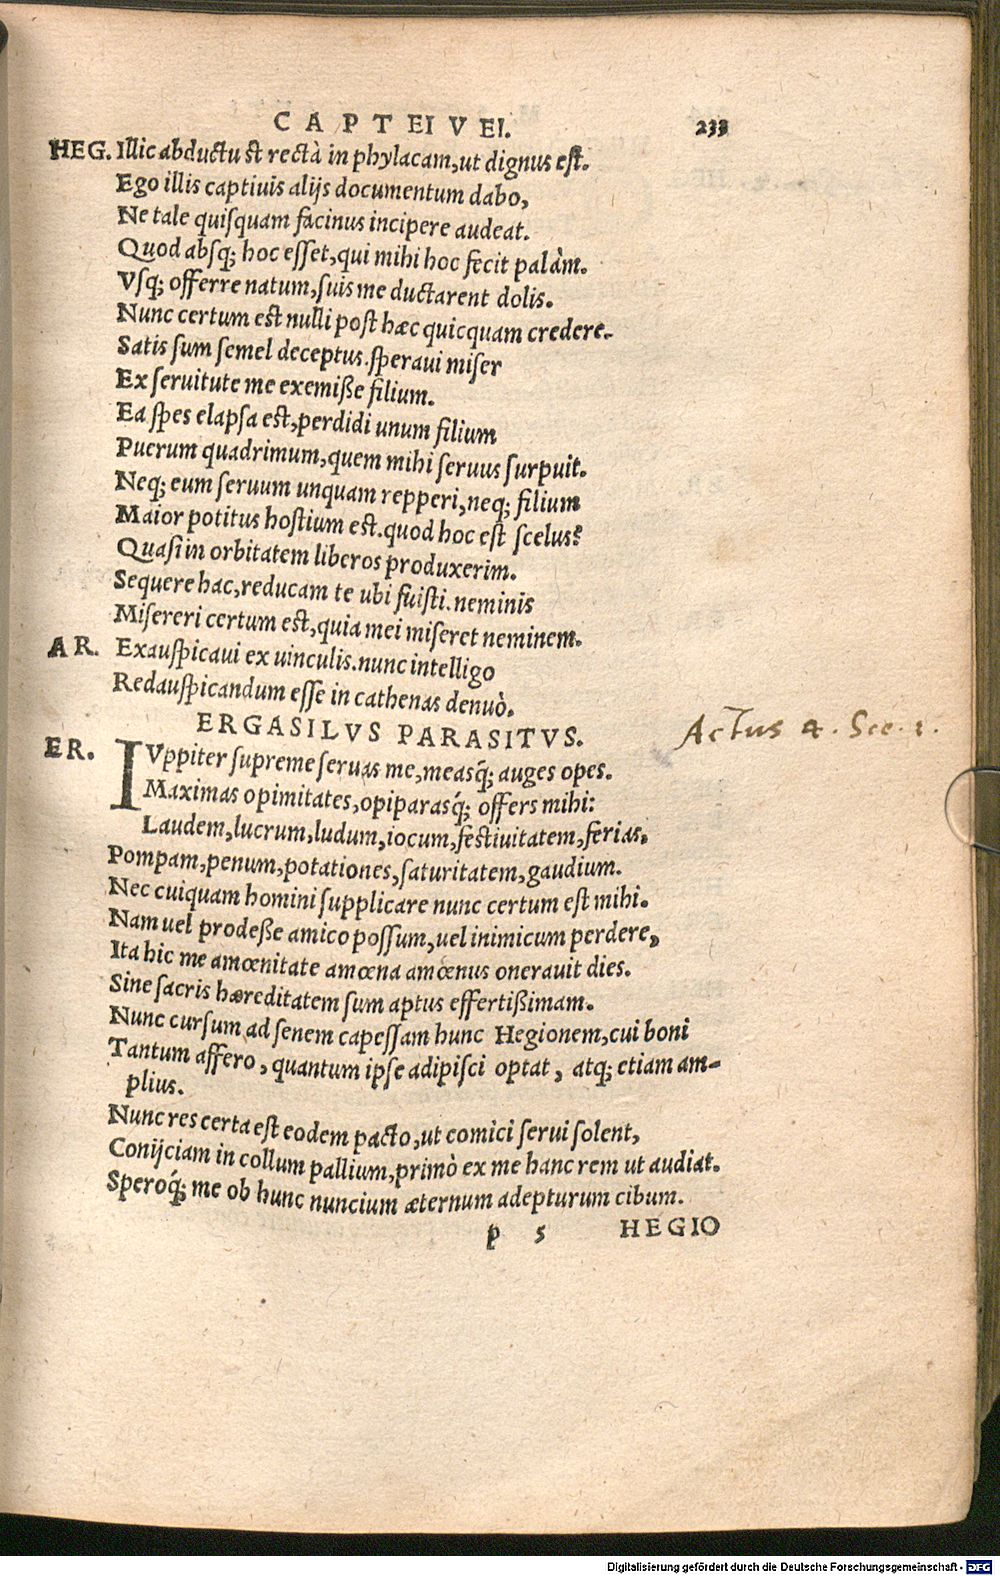 CAPTEIVEI. 233
HEG. Illic abductu st rectà in phylacam, ut dignus est.
Ego illis captiuis alijs documentum dabo,
Ne tale quisquam facinus incipere audeat.
Quod absq; hoc esset, qui mihi hoc fecit palàm.
Vsq; offerre natum, suis me ductarent dolis.
Nunc certum est nulli post hæc quicquam credere.
Satis sum semel deceptus. speraui miser
Ex seruitute me exemiße filium.
Ea spes elapsa est, perdidi unum filium
Puerum quadrimum, quem mihi seruus surpuit.
Neq; eum seruum unquam repperi, neq; filium
Maior potitus hostium est. quod hoc est scelus?
Quasi in orbitatem liberos produxerim.
Sequere hac, reducam te ubi fuisti. neminis
Misereri certum est, quia mei miseret neminem.
AR. Exauspicaui ex uinculis. nunc intelligo
Redauspicandum esse in cathenas denuò.
ERGASILVS PARASITVS. Actus 4. Sce. 1.
ER. IVppiter supreme seruas me, measq́; auges opes.
Maximas opimitates, opiparasq́; offers mihi:
Laudem, lucrum, ludum, iocum, festiuitatem, ferias,
Pompam, penum, potationes, saturitatem, gaudium.
Nec cuiquam homini supplicare nunc certum est mihi.
Nam uel prodeße amico possum, uel inimicum perdere,
Ita hic me amœnitate amœna amœnus onerauit dies.
Sine sacris hæreditatem sum aptus effertißimam.
Nunc cursum ad senem capessam hunc Hegionem, cui boni
Tantum affero, quantum ipse adipisci optat, atq; etiam am-
plius.
Nunc res certa est eodem pacto, ut comici serui solent,
Conijciam in collum pallium, primò ex me hanc rem ut audiat.
Speroq́; me ob hunc nuncium æternum adepturum cibum.
p 5 HEGIO
Digitalisierung gefördert durch die Deutsche Forschungsgemeinschaft - DFG